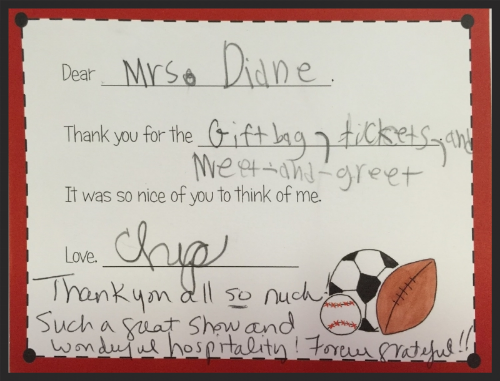 Dear Mrs. Diane.
Thank you for the Giftbag, tickets, and
Meet-and-greet
It was so nice of you to think of me.
Love, Chip
Thank you all so much!
Such a great show and
wonderful hospitality! Forever grateful!!